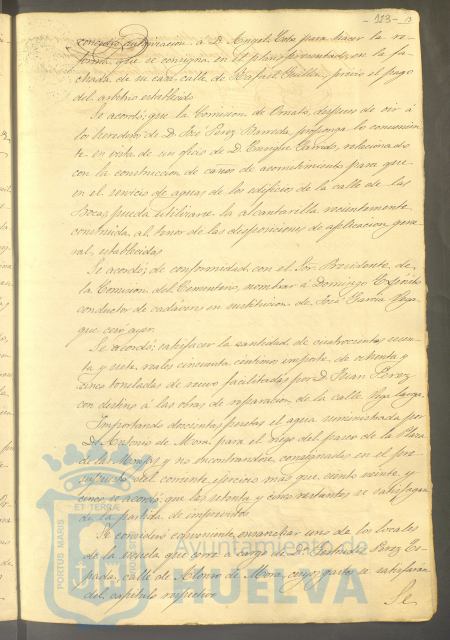 113 - 13
conceder autorizacion á D. Angel Soto para hacer la re-
forma que se consigna en el plano presentado, en la fa-
chada de su casa calle de Rafael Guillen, previo el pago
del arbitrio establecido.
Se acordó, que la Comision de Ornato, despues de oir á
los herederos de D. José Perez Barreda, proponga lo convenien-
te en vista de un oficio de D. Enrique Garrido, relacionado
con la construccion de caños de acometimiento para que
en el servicio de aguas de los edificios de la calle de las
Bocas pueda utilizarse la alcantarilla recientemente
construida, al tenor de las disposiciones de aplicacion gene-
ral, establecidas.
Se acordó, de conformidad con el Sor. Presidente de
la Comision del Cementerio, nombrar á Domingo Expósito
conductor de cadáveres en sustitucion de José Garcia
que cesó ayer.
Se acordó: satisfacer la cantidad de cuatrocientos
ta y siete reales cincuenta céntimos importe de ochenta y
cinco toneladas de facilitadas por D. Juan Perez
con destino á las obras de reparacion de la calle larga.
Importando doscientas pesetas el agua suministrada por
D. Antonio de Mora para el riego del paseo de la Plaza
de las Monjas y no encontrandose consignadas en el pre-
supuesto del corriente ejercicio mas que ciento veinte y
cinco, se acordó: que las setenta y cinco restantes se satisfagan
de la partida de imprevistos.
Se consideró conveniente ensanchar uno de los locales
de la escuela que corre á cargo de D. Perez
calle de Alonso de Mora, cuyo gasto se satisfará
del capítulo respectivo.
Se
PORTUS MARIS
ET TERRÆ
Ayuntamiento de
HUELVA